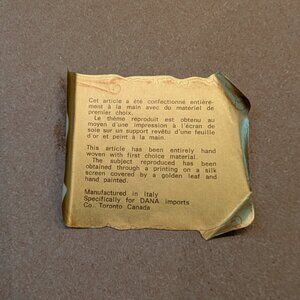 Cet article a été confectionné entière-
ment à la main avec du matériel de
premier choix.
Le thème reproduit est obtenu au
moyen d'une impression à l'écran de
soie sur un support revêtu d'une feuille
d'or et peint à la main.
This article has been entirely hand
woven with first choice material.
The subject reproduced has been
obtained through a printing on a silk
screen covered by a golden leaf and
hand painted.
Manufactured in Italy
Specifically for DANA imports
Co. Toronto Canada